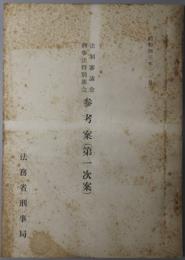 昭和四三年
法制審議会
刑事法特別部会
参考案(第一次案)
法務省刑事局